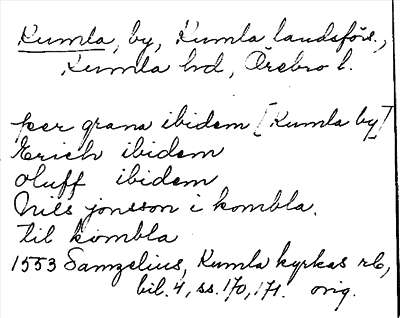 Kumla, by, Kumla landsförs.,
Kumla hd, Örebro l.
per grana ibidem [Kumla by]
Erich ibidem
oluff ibidem
Nils jonsson i kombla.
til kombla
1553 Samzelius, Kumla kyrkas rb,
bil. 4, ss. 170, 171. orig.